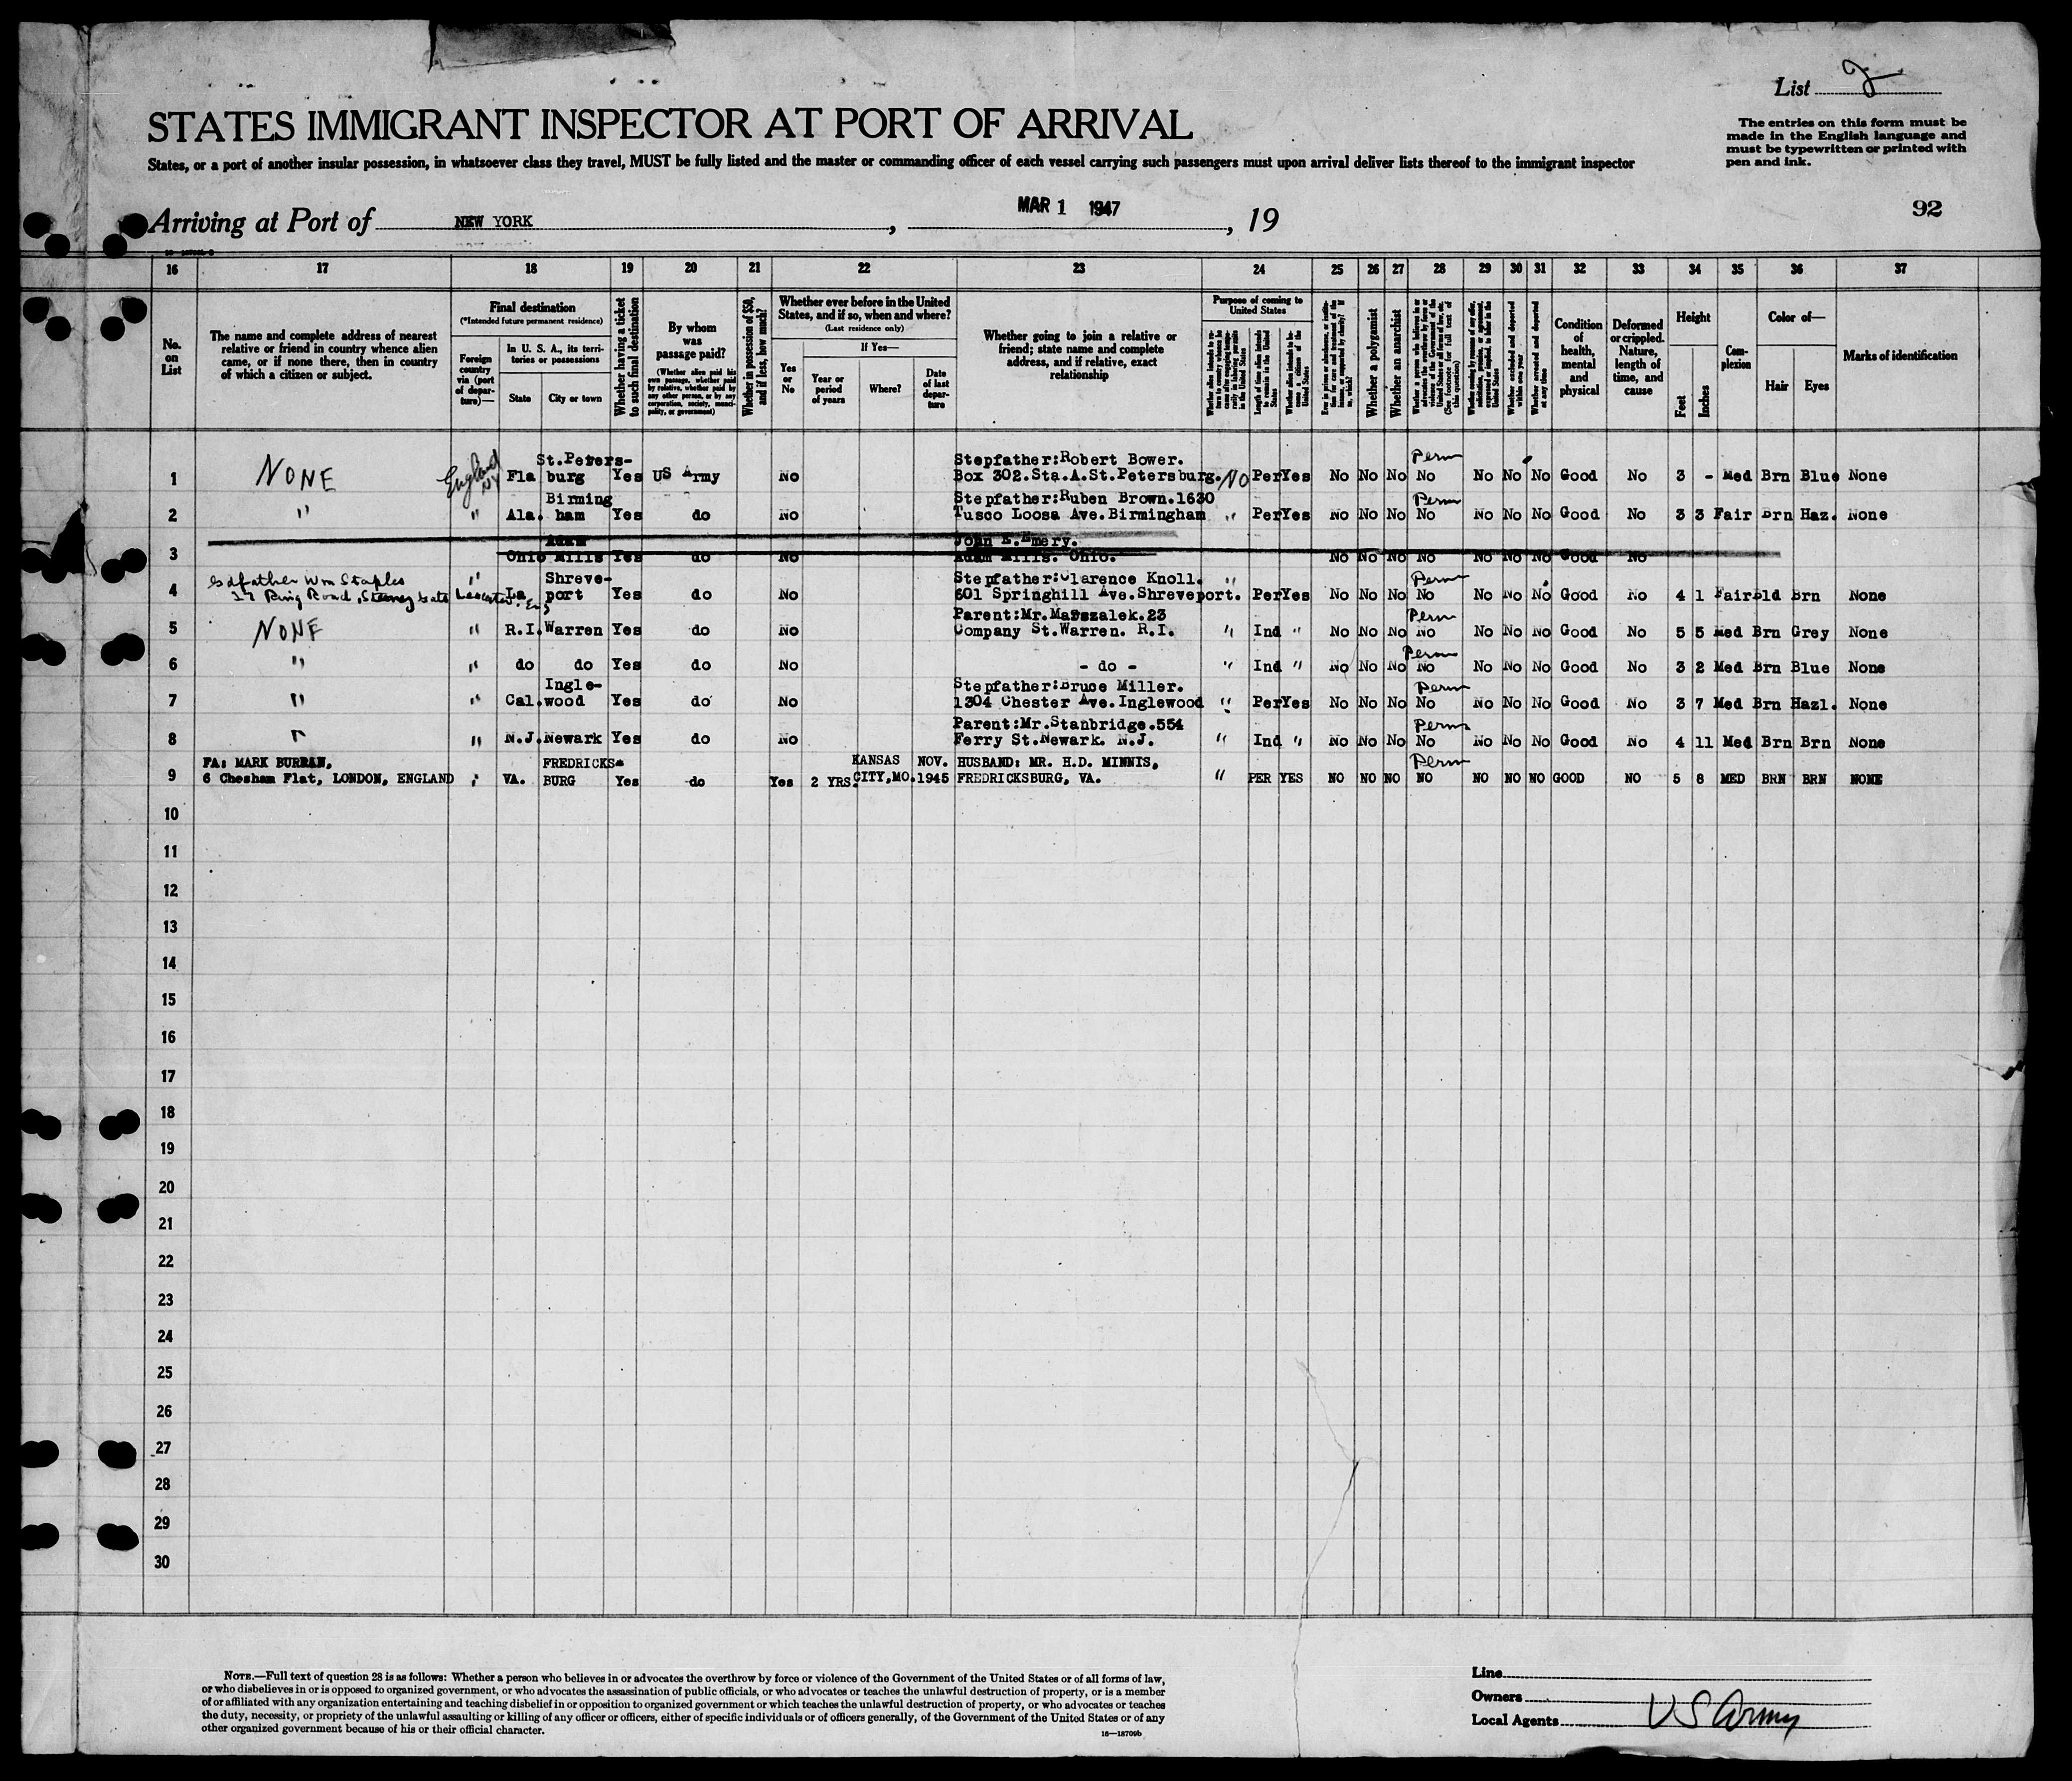 List 2
STATES IMMIGRANT INSPECTOR AT PORT OF ARRIVAL
The entries on this form must be
made in the English language and
must be typewritten or printed with
pen and ink.
States, or a port of another insular possession, in whatsoever class they travel, MUST be fully listed and the master or commanding officer of each vessel carrying such passengers must upon arrival deliver lists thereof to the immigrant inspector
Arriving at Port of NEW YORK , MAR 1 1947 , 19
92
16 17 18 19 20 21 22 23 24 25 26 27 28 29 30 31 32 33 34 35 36 37
No. on List
The name and complete address of nearest
relative or friend in country whence alien
came, or if none there, then in country
of which a citizen or subject.
Final destination
(*Intended future permanent residence)
Foreign country via (port of departure)—
In U. S. A., its territories or possessions
State
City or town
Whether having a ticket to such final destination
By whom was passage paid?
(Whether alien paid his own passage, whether paid by relative, whether paid by any other person, or by any corporation, society, municipality, or government)
Whether in possession of $50, and if less, how much?
Whether ever before in the United States, and if so, when and where?
(Last residence only)
If Yes—
Yes or No
Year or period of years
Where?
Date of last departure
Whether going to join a relative or
friend; state name and complete
address, and if relative, exact
relationship
Purpose of coming to United States
Length of time alien intends to remain in the United States
Whether alien intends to become a citizen of the United States
Whether a polygamist
Whether an anarchist
Whether excluded and deported within one year
Whether arrested and deported at any time
Condition of health, mental and physical
Deformed or crippled. Nature, length of time, and cause
Height
Feet
Inches
Complexion
Color of—
Hair
Eyes
Marks of identification
1 NONE England NY Fla St.Peters-burg Yes US Army No Stepfather:Robert Bower. Box 302.Sta.A.St.Petersburg. NO Per Yes No No No Perm No No No No Good No 3 - Med Brn Blue None
2 " " Ala. Birming ham Yes do No Stepfather:Ruben Brown.1630 Tusco Loosa Ave.Birmingham " Per Yes No No No Perm No No No No Good No 3 3 Fair Brn Haz. None
3 Ohio Adam Mills Yes do No John E.Emery. Adam Mills. Ohio. No No No No No No No Good No
4 Gdfather Wm Staples 27 Ring Road, Leicester. Eng " La Shreve-port Yes do No Stepfather:Clarence Knoll. 601 Springhill Ave.Shreveport. " Per Yes No No No Perm No No No No Good No 4 1 Fair Bld Brn None
5 NONE " R.I. Warren Yes do No Parent:Mr.Marszalek.23 Company St.Warren. R.I. " Ind " No No No Perm No No No No Good No 5 5 Med Brn Grey None
6 " " do do Yes do No - do - " Ind " No No No Perm No No No No Good No 3 2 Med Brn Blue None
7 " " Cal. Ingle-wood Yes do No Stepfather:Bruce Miller. 1304 Chester Ave.Inglewood " Per Yes No No No Perm No No No No Good No 3 7 Med Brn Hazl. None
8 " " N.J. Newark Yes do No Parent:Mr.Stanbridge.554 Ferry St.Newark. N.J. " Ind " No No No Perm No No No No Good No 4 11 Med Brn Brn None
9 FA: MARK BURRAN, 6 Chesham Flat, LONDON, ENGLAND " VA. FREDRICKS-BURG Yes do Yes 2 YRS. KANSAS CITY,MO. NOV. 1945 HUSBAND: MR. H.D. MINNIS, FREDRICKSBURG, VA. " PER YES NO NO NO Perm NO NO NO NO GOOD NO 5 8 MED BRN BRN NONE
10
11
12
13
14
15
16
17
18
19
20
21
22
23
24
25
26
27
28
29
30
NOTE.—Full text of question 28 is as follows: Whether a person who believes in or advocates the overthrow by force or violence of the Government of the United States or of all forms of law,
or who disbelieves in or is opposed to organized government, or who advocates the assassination of public officials, or who advocates or teaches the unlawful destruction of property, or is a member
of or affiliated with any organization entertaining and teaching disbelief in or opposition to organized government or which teaches the unlawful destruction of property, or who advocates or teaches
the duty, necessity, or propriety of the unlawful assaulting or killing of any officer or officers, either of specific individuals or of officers generally, of the Government of the United States or of any
other organized government because of his or their official character.
16—18709b
Line
Owners
Local Agents US Army